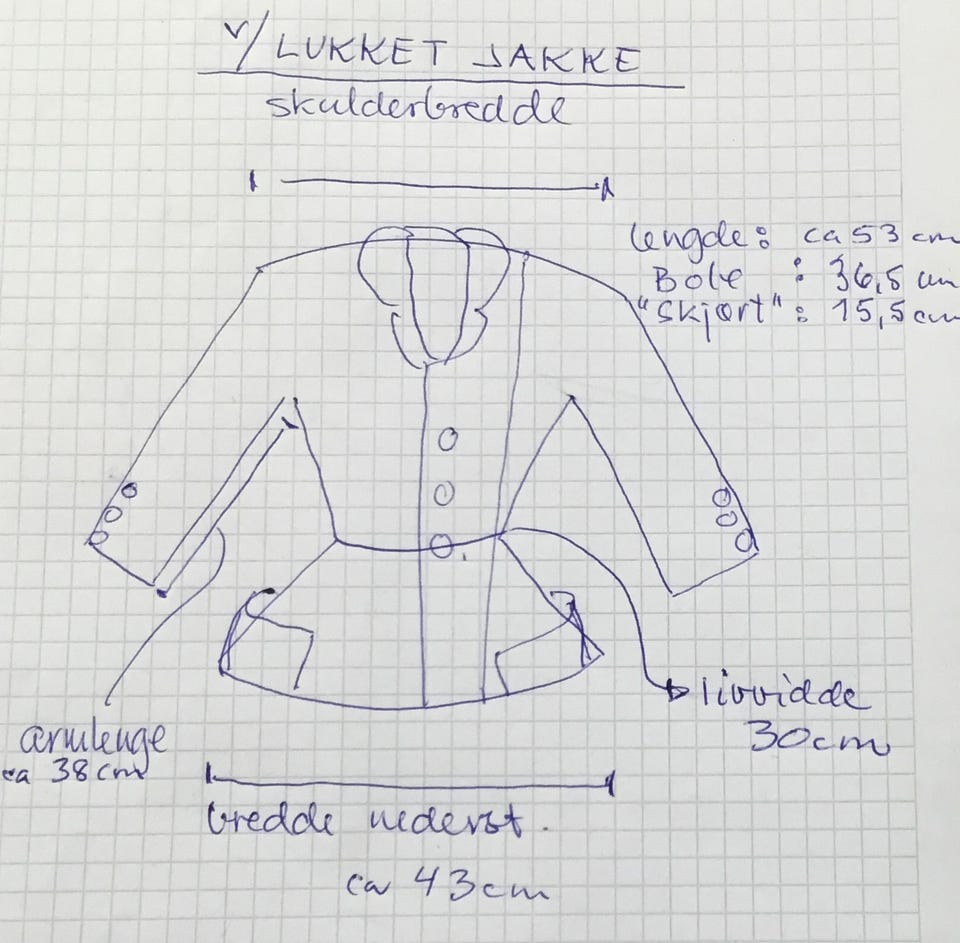 v/LUKKET JAKKE
skulderbredde
lengde: ca 53 cm
Bole : 36,5 cm
"Skjørt": 15,5cm
livvidde
30cm
ermlenge
ca 38cm
bredde nederst.
ca 43cm